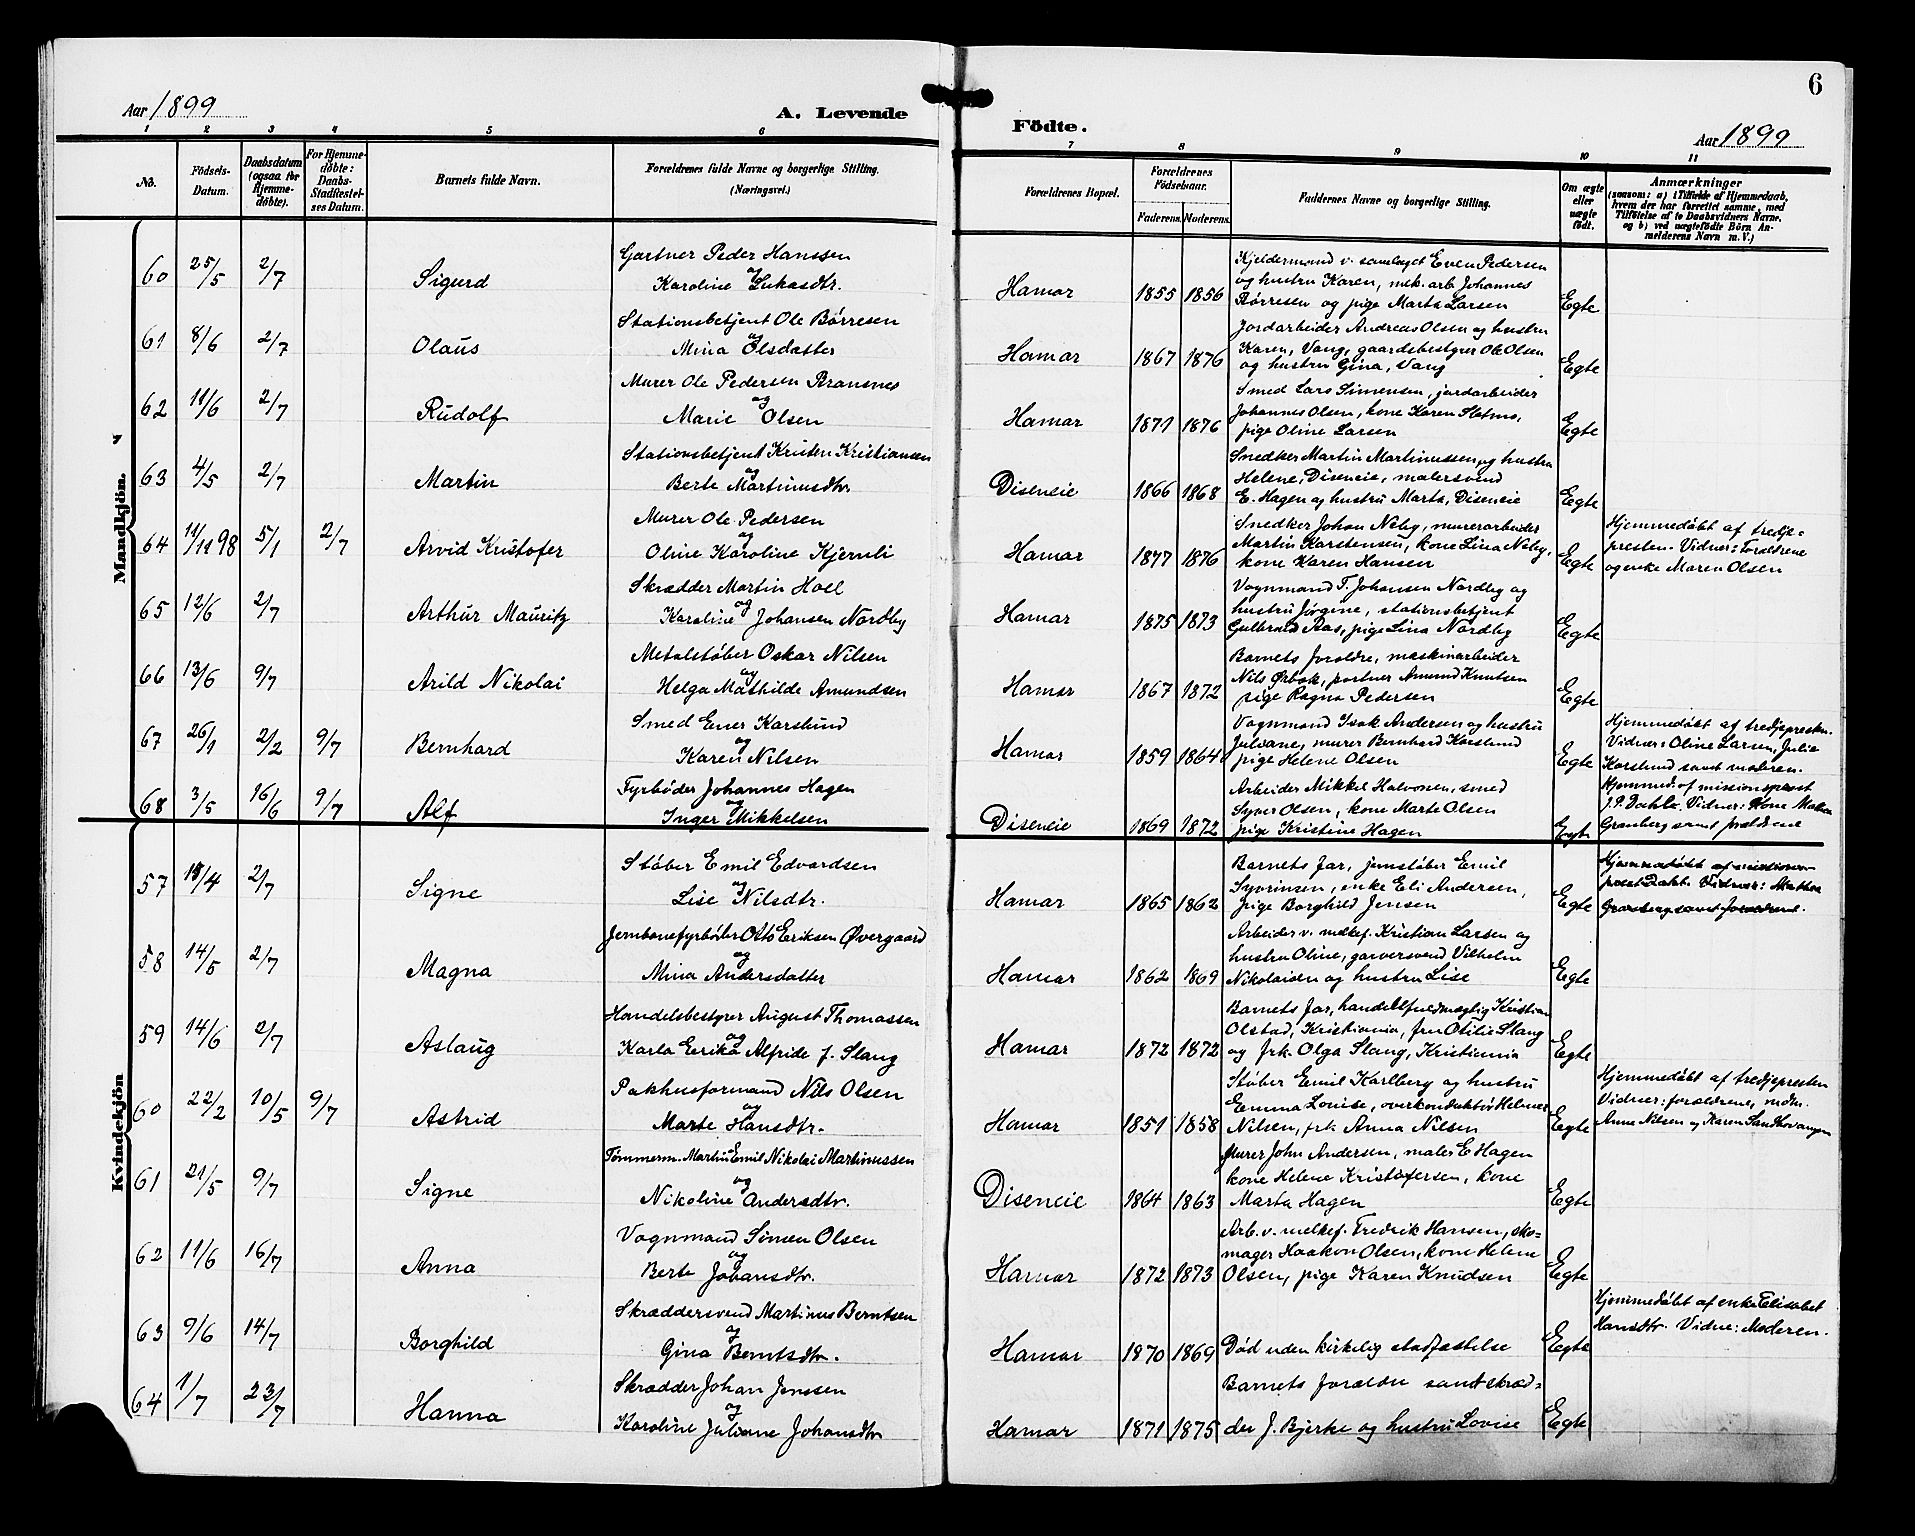 6
Aar 1899
A. Levende
Födte.
Aar 1899
1 2 3 4 5 6 7 8 9 10 11
No.
Födsels-Datum.
Daabsdatum (ogsaa for Hjemme-döbte).
For Hjemme-döbte: Daabs-Stadfæstelses Datum.
Barnets fulde Navn.
Forældrenes fulde Navne og borgerlige Stilling. (Næringsvei.)
Forældrenes Bopæl.
Forældrenes Födselsaar.
Faderens. Moderens.
Faddernes Navne og borgerlige Stilling.
Om ægte eller uægte født.
Anmærkninger
(saasom: a) i Tilfælde af Hjemmedaab, hvem der har forrettet samme, med Tilföielse af to Daabsvidners Navne, og b) ved uægtefödte Börn Anmelderens Navn m. V.)
Mandkjön.
60 25/5 2/7 Sigurd
Gartner Peder Hanssen
og
Karoline Lukasdtr.
Hamar 1855 1856
Kjeldermand v. samlaget Even Pedersen
og hustru Karen, mek. arb Johannes
Børresen og pige Marta Larsen
Egte
61 8/6 2/7 Olaus
Stationsbetjent Ole Børresen
og
Mina Olsdatter
Hamar 1867 1876
Jordarbeider Andreas Olsen og hustru
Karen, Vang, gaardsbestyrer Ole Olsen
og hustru Gina, Vang
Egte
62 11/6 2/7 Rudolf
Murer Ole Pedersen Bransnes
og
Marie Olsen
Hamar 1871 1876
Smed Lars Simensen, jordarbeider
Johannes Olsen, kone Karen
pige Oline Larsen
Egte
63 4/5 2/7 Martin
Stationsbetjent Kristen Kristiansen
og
Berte Martinusdtr
Diseneie 1866 1868
Snedker Martin Martinussen og hustru
Helene, Diseneie, malersvend
E. Hagen og hustru Marta, Diseneie
Egte
64 11/11 98 5/1 2/7 Arvid Kristofer
Murer Ole Pedersen
og
Oline Karoline Kjernli
Hamar 1877 1876
Snedker Johan Neby, murerarbeider
Martin Karstensen, kone Lina Neby,
kone Karen Hansen
Egte
Hjemmedøbt af tredje-
presten. Vidner: Forældrene
og enke Maren Olsen
65 12/6 2/7 Arthur Mauritz
Skrædder Martin Hoel
og
Karoline Johansen Nordby
Hamar 1875 1873
Vognmand T. Johansen Nordby og
hustru Jørgine, stationsbetjent
Gulbrand Aas, pige Lina Nordby
Egte
66 13/6 9/7 Arild Nikolai
Metalstøber Oskar Nilsen
og
Helga Mathilde Amundsen
Hamar 1867 1872
Barnets foreldre, maskinarbeider
Nils Ørbak, portner Amund Knutsen
pige Ragna Pedersen
Egte
67 26/1 2/2 9/7 Bernhard
Smed Ener Karslund
og
Karen Nilsen
Hamar 1859 1864
Vognmand Isak Andersen og hustru
Julvane, murer Bernhard Karslund
pige Helene Olsen
Egte
Hjemmedøbt af tredjepresten.
Vidner: Oline Larsen, Julie
Karslund samt moderen.
68 3/5 16/6 9/7 Alf
Fyrbøder Johannes Hagen
og
Inger Mikkelsen
Diseneie 1869 1872
Arbeider Mikkel Halvorsen, smed
Syver Olsen, kone Marte Olsen
pige Kristine Hagen
Egte
Hjemmed. af missionsprest
J.P. Dahle. Vidner: Kone
Granberg samt forældrene
Kvindekjön
57 18/4 2/7 Signe
Støber Emil Edvardsen
og
Lise Nilsdtr.
Hamar 1865 1862
Barnets far, jernstøber Emil
Syvrinsen, enke Eli Andersen,
pige Borghild Jensen
Egte
Hjemmedøbt af missions-
prest Dahl. Vidner:
Granberg samt forældrene.
58 14/5 2/7 Magna
Jernbanefyrbøder Otto Eriksen Øvergaard
og
Mina Andersdatter
Hamar 1862 1869
Arbeider v. melkef. Kristian Larsen og
hustru Oline, garversvend Vilhelm
Nikolaisen og hustru Lise
Egte
59 14/6 2/7 Aslaug
Handelsbestyrer August Thomassen
og
Karla Erika Alfride f. Slang
Hamar 1872 1872
Barnets far, handelsfuldmægtig Kristian
Olstad, Kristiania, fru Otilie Slang
og frk. Olga Slang, Kristiania
Egte
60 22/2 10/5 9/7 Astrid
Pakhusformand Nils Olsen
og
Marte Hansdtr.
Hamar 1851 1858
Støber Emil Karlberg og hustru
Emma Louise, overkonduktør Helmer
Nilsen, frk Anna Nilsen
Egte
Hjemmedøbt af tredjepresten
Vidner: forældrene, madm.
Anne Nilsen og Karen Sandhovangen
61 21/5 9/7 Signe
Tømmerm. Martin Emil Nikolai Martinussen
og
Nikoline Andersdtr.
Diseneie 1864 1863
Murer John Andersen, maler E Hagen
kone Helene Kristofersen, kone
Marta Hagen
Egte
62 11/6 16/7 Anna
Vognmand Simen Olsen
og
Berte Johansdtr.
Hamar 1872 1873
Arb. v. melkef. Fredrik Hansen, sko-
mager Haakon Olsen, kone Helene
Olsen, pige Karen Knudsen
Egte
63 9/6 14/7 Borghild
Skræddersvend Martinus Berntsen
og
Gina Berntsdtr.
Hamar 1870 1869
Død uden kirkelig stadfæstelse
Egte
Hjemmedøbt af enke Elisabet
Hansdtr. Vidne: Moderen.
64 1/7 23/7 Hanna
Skrædder Johan Jenssen
og
Karoline Juliane Johansdtr
Hamar 1871 1875
Barnets forældre samt skræd-
der J. Bjerke og hustru Lovise
Egte